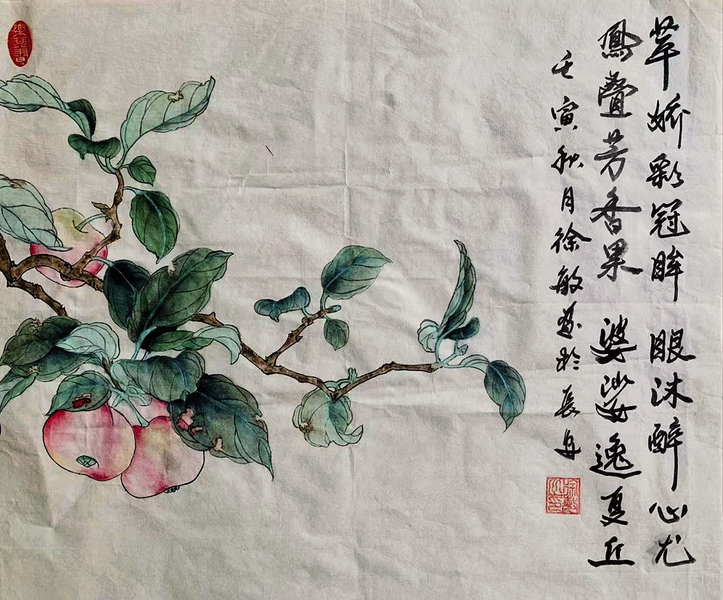 苹娇彩冠眸 眼沐醉心尤
凤叠芳香果 婆娑逸夏丘
壬寅秋月徐敏画於长舟